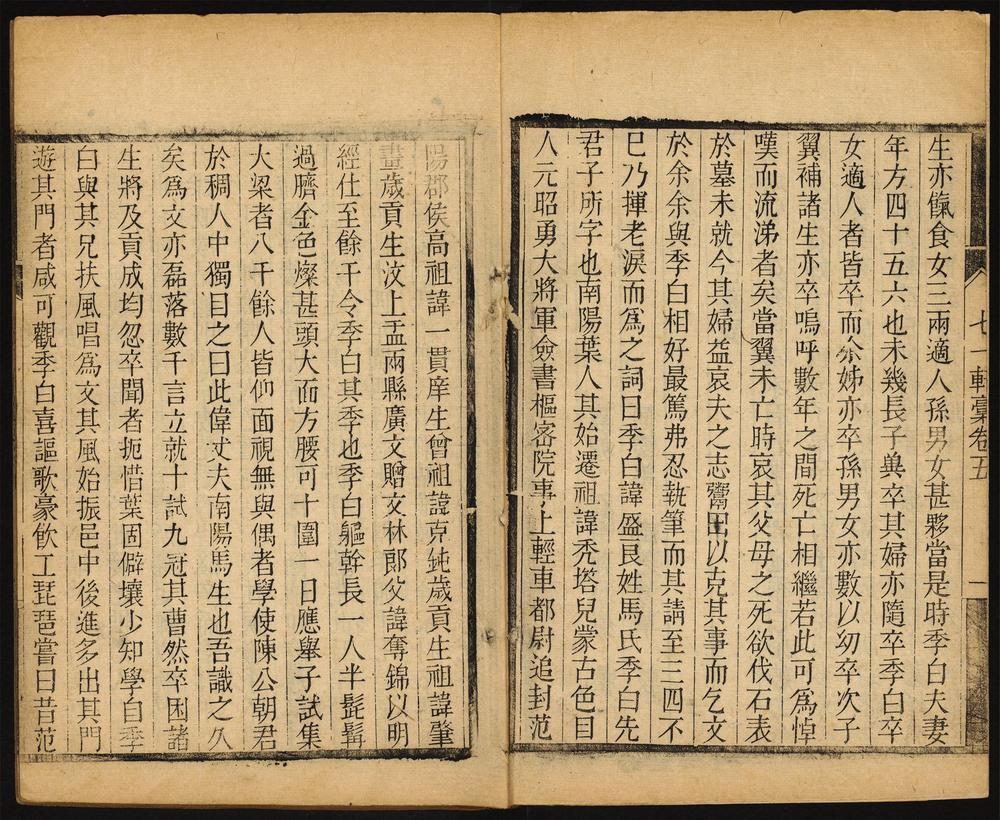 七一軒稾卷五
一
生亦餼食女三兩適人孫男女甚夥當是時季白夫妻
年方四十五六也未幾長子㒷卒其婦亦隨卒季白卒
女適人者皆卒而余姊亦卒孫男女亦數以幼卒次子
翼補諸生亦卒嗚呼數年之間死亡相繼若此可爲悼
嘆而流涕者矣當翼未亡時哀其父母之死欲伐石表
於墓未就今其婦益哀夫之志鬻田以克其事而乞文
於余余與季白相好最篤弗忍執筆而其請至三四不
巳乃揮老淚而爲之詞曰季白諱盛良姓馬氏季白先
君子所字也南陽葉人其始遷祖諱禿塔兒蒙古色目
人元昭勇大將軍僉書樞密院事上輕車都尉追封范
陽郡侯高祖諱一貫庠生曾祖諱克鈍歲貢生祖諱肇
畫歲貢生汶上盂兩縣廣文贈文林郎父諱奪錦以明
經仕至餘干令季白其季也季白軀幹長一人半髭髯
過臍金色燦甚頭大而方腰可十圍一日應舉子試集
大梁者八千餘人皆仰面視無與偶者學使陳公朝君
於稠人中獨目之曰此偉丈夫南陽馬生也吾識之久
矣爲文亦磊落數千言立就十試九冠其曹然卒困諸
生將及貢成均忽卒聞者扼惜葉固僻壤少知學自季
白與其兄扶風唱爲文其風始振邑中後進多出其門
遊其門者咸可觀季白喜謳歌豪飲工琵琶嘗曰昔范